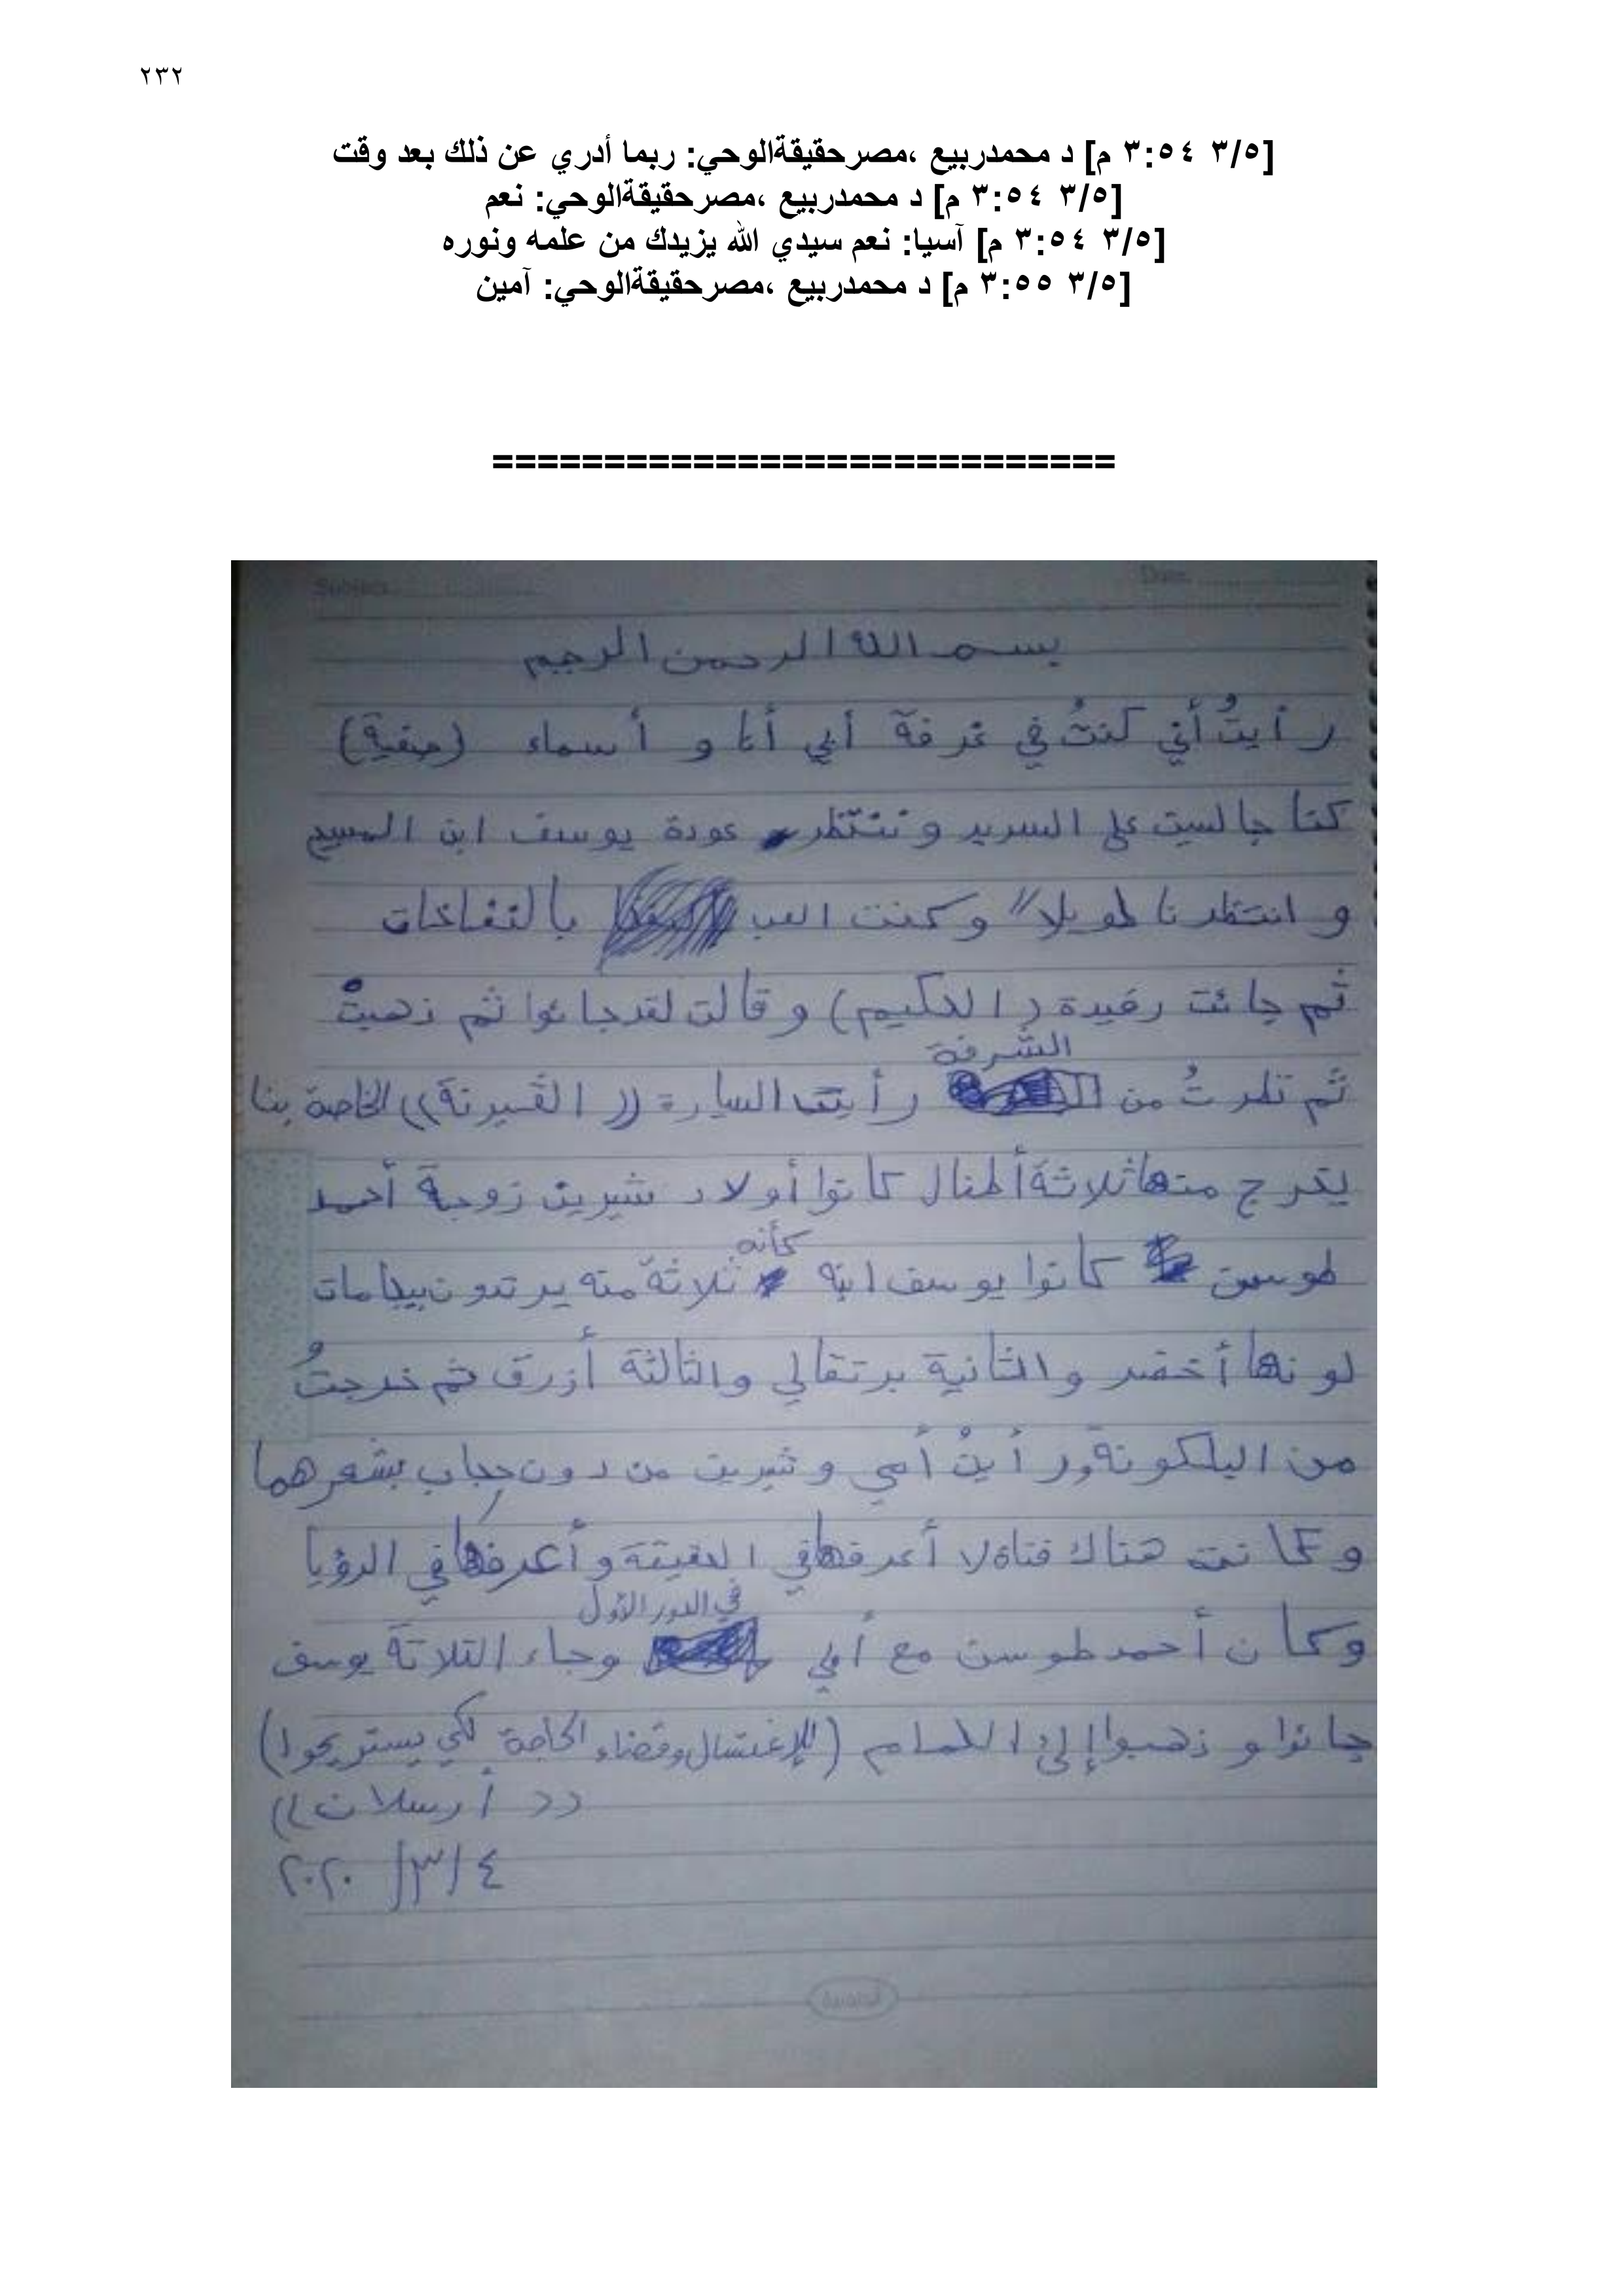 ٢٣٢
[٣/٥ ٣:٥٤ م] د محمدربيع ،مصرحقيقةالوحي: ربما أدري عن ذلك بعد وقت
[٣/٥ ٣:٥٤ م] د محمدربيع ،مصرحقيقةالوحي: نعم
[٣/٥ ٣:٥٤ م] آسيا: نعم سيدي الله يزيدك من علمه ونوره
[٣/٥ ٣:٥٥ م] د محمدربيع ،مصرحقيقةالوحي: آمين
===========================
Subject Date
بسم الله الرحمن الرحيم
رأيتُ أني كنتُ في غرفة أبي أنا و أسماء
كنا جالسين على السرير و ننتظر عودة يوسف ابن المسيح
و انتظرنا طويلاً وكنت العب بالنفاخات
ثم جائت رفيدة (الحكيم) و قالت لقد جائوا ثم ذهبتْ
الشرفة
ثم نظرتُ من رأيت السيارة ((الڤيرنة)) الخاصة بنا
يخرج منها ثلاثة أطفال كانوا أولاد شيرين زوجة أحمد
كأنه
طوسن كانوا يوسف ابنه ثلاثة منه يرتدون بيجامات
لونها أخضر و الثانية برتقالي والثالثة أزرق ثم خرجتُ
من البلكونة ورأيتُ أمي و شيرين من دون حجاب بشعرهما
و كانت هناك فتاة لا أعرفها في الحقيقة و أعرفها في الرؤيا
في الدور الأول
وكان أحمد طوسن مع أبي وجاء الثلاثة يوسف
جائوا و ذهبوا إلى الحمام (للإغتسال وقضاء الحاجة لكي يستريحوا)
((أرسلان))
٤/٣/٢٠٢٠